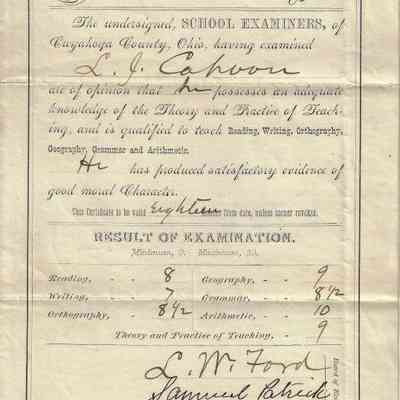 The undersigned, SCHOOL EXAMINERS, of
Cuyahoga County, Ohio, having examined
L. J. Cahoon
are of opinion that he possesses an adequate
knowledge of the Theory and Practice of Teach-
ing, and is qualified to teach Reading, Writing, Orthography,
Geography, Grammar and Arithmetic.
He has produced satisfactory evidence of
good moral Character.
This Certificate to be valid Eighteen from date, unless sooner revoked.
RESULT OF EXAMINATION.
Minimum, 0. Maximum, 10.
Reading, - - 8 Geography, - - 9
Writing, - - 7 Grammar, - - 8 1/2
Orthography, - - 8 1/2 Arithmetic, - - 10
Theory and Practice of Teaching, - - 9
L. W. Ford
Samuel Patrick
Board of